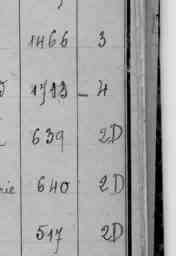 1466 3
1713 - 4
639 2D
rie 640 2D
517 2D